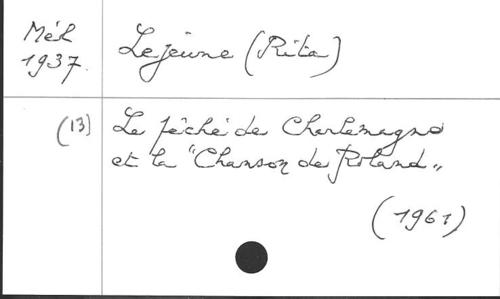 Mél
1937.
Lejeune (Rita)
(13)
Le péché de Charlemagne
et la "Chanson de Roland"
(1961)